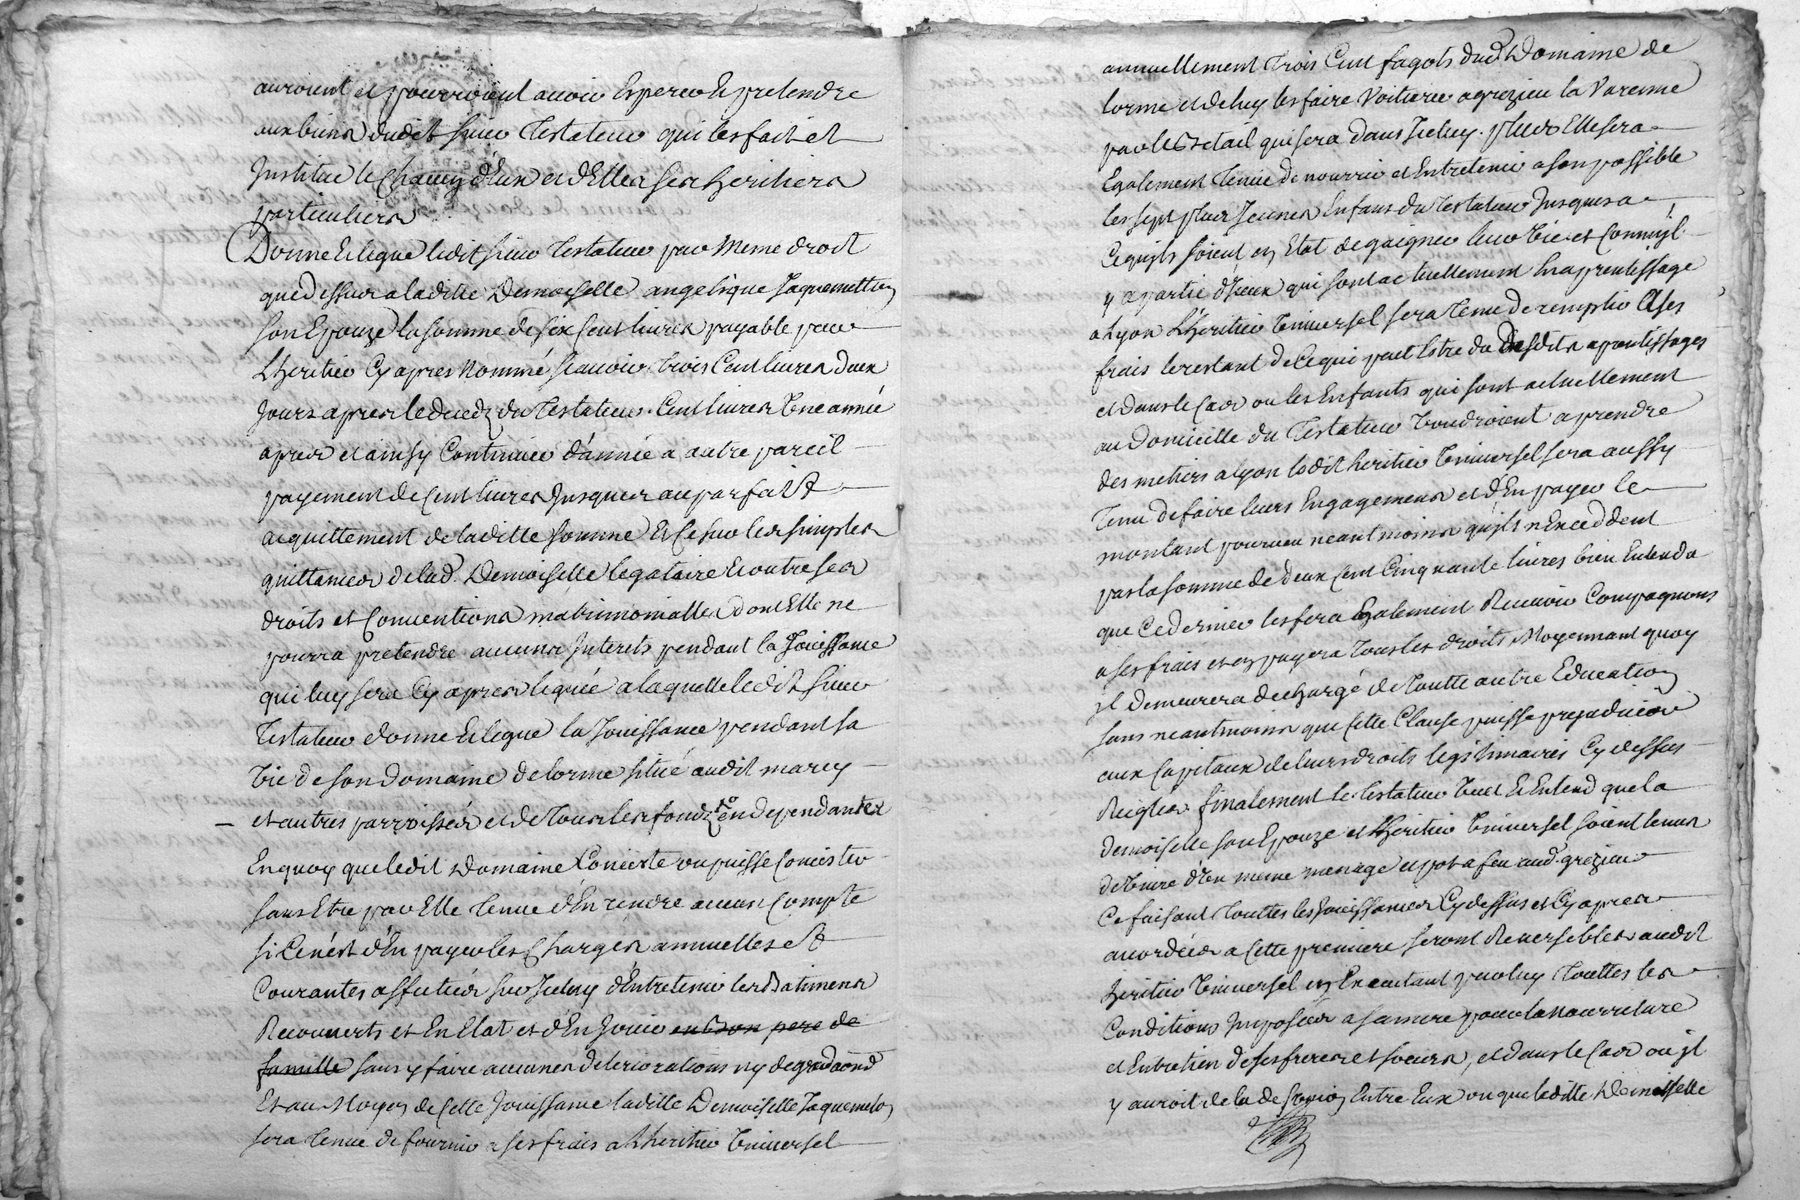 auroient et pourroient avoir Esperer Et pretendre
aux biens dudit sieur Testateur qui les fait et
Institue le Chacun d'Eux et d'Elles ses heritiers
particuliers
Donne Et legue ledit sieur Testateur par Meme droit
que dessus a laditte Demoiselle angelique Jaquemetton
son Epouze la somme de six Cent livres payable par
L'heritier Cy apres Nommé scauoir trois Cent livres deux
Jours apres le deced du Testateur. Cent livres Vne année
apres et ainsy Continuer d'année a autre pareil
payement de Cent livres Jusques au parfait
acquittement de laditte somme Et Ce sur les simples
quittances de lad. Demoiselle legataire Et outre ses
droits et Conventions matrimonialles dont Elle ne
pourra pretendre aucuns Interets pendant la Jouissance
qui luy sera Cy apres leguée a laquelle ledit sieur
Testateur donne Et legue la Jouissance pendant sa
Vie de son domaine de lorme situé audit marcy
et autres parroisses et de Tous les fonds en dependantes
En quoy que ledit Domaine Conciste ou puisse Concister
sans Etre par Elle Tenue d'En rendre aucun Compte
si Ce n'est d'En payer les Charges annuelles et
Courantes affectées sur Iceluy d'Entretenir les Batimens
Recouverts et En Etat et d'En Jouir en Bon pere de
famille sans y faire aucunes deteriorations ny degradaõnd
Et au Moyen de Cette Jouissance laditte Demoiselle Jaquemeton
sera Tenue de fournir a ses frais a L'heritier Vniversel
annuellement trois Cent fagots dud. Domaine de
lorme et de luy les faire Voiturer a grezieu la Varenne
par le Betail qui sera dans Iceluy. plus Elle sera
Egalement Tenue de nourrir et Entretenir a son possible
les sept plus Jeunes Enfans du Testateur Jusques a
Ce qu'ils soient en Etat de gaigner leur Vie et Comm'il
y a partie d'Iceux qui sont actuellement En aprentissage
a Lyon L'heritier Vniversel sera Tenu de remplir a ses
frais le restant de Ce qui peut Estre du desdits aprentissages
et dans le Cas ou les Enfants qui sont actuellement
au Domicille du Testateur Voudroient aprendre
des metiers a Lyon ledit heritier Vniversel sera aussy
Tenu de faire leurs Engagemens et d'En payer le
montant pourveu neantmoins qu'ils n'Exceddent
pas la somme de deux Cent Cinquante livres bien Entendu
que Ce dernier les fera Egalement Recevoir Compagnons
a ses frais et en payera Tous les droits Moyennant quoy
il demeurera dechargé de Toutte autre Education
sans neantmoins que Cette Clause puisse prejudicier
aux Capitaux de leurs droits legitimaires Cy dessus
Reglés finalement le Testateur Veut Et Entend que la
demoiselle son Epouze et L'heritier Vniversel soient tenus
de Vivre d'Un meme menage et pot a feu aud. grezieu
Ce faisant Touttes les Jouissances Cy dessus et Cy apres
accordées a Cette premiere seront Reversibles audit
heritier Vniversel en Executant par luy Touttes les
Conditions Imposées a sa mere pour la nourriture
et Entretien de ses freres et soeurs, et dans le Cas ou il
y auroit de la desunion Entre Eux ou que laditte Demoiselle